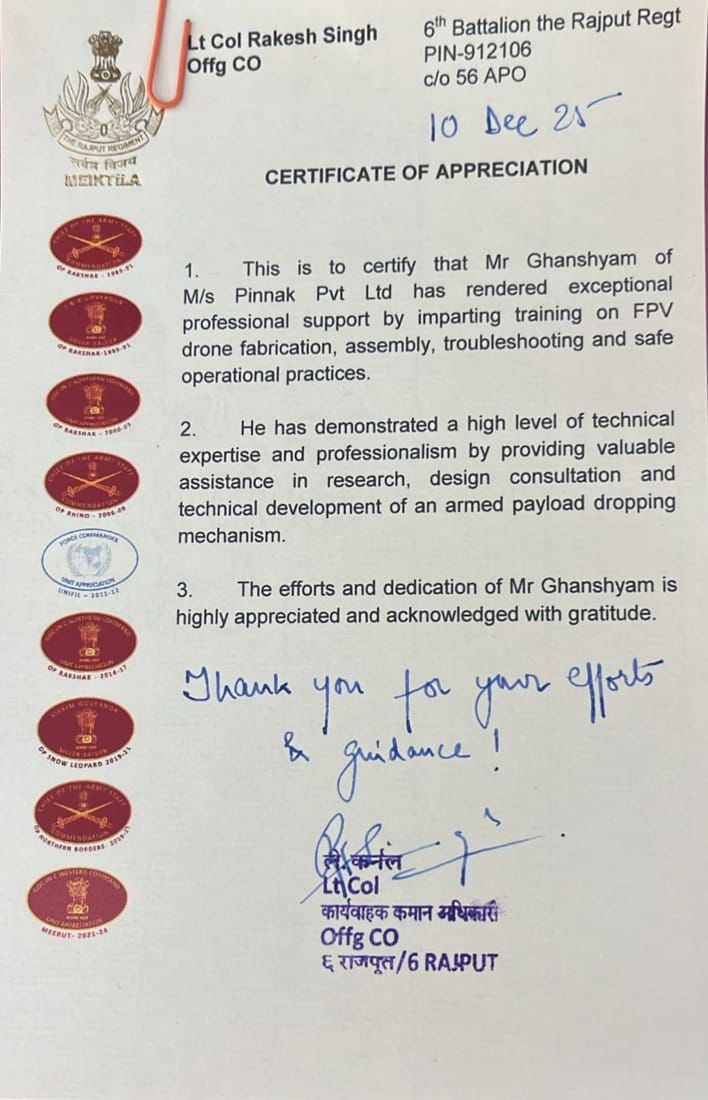 Lt Col Rakesh Singh
Offg CO
6th Battalion the Rajput Regt
PIN-912106
c/o 56 APO
10 Dec 25
THE RAJPUT REGIMENT
सर्वत्र विजय
MEIKTILA
CERTIFICATE OF APPRECIATION
CHIEF OF THE ARMY STAFF
COMMENDATION
OP RAKSHAK - 1989-91
J & K GOVERNOR
SILVER SALVER
OP RAKSHAK-1989-91
GOC-IN-C NORTHERN COMMAND
UNIT APPRECIATION
CHIEF OF THE ARMY STAFF
COMMENDATION
FORCE COMMANDER
UNIT APPRECIATION
UNIFIL - 2011-12
GOC-IN-C NORTHERN COMMAND
UNIT APPRECIATION
OP RAKSHAK - 2014-17
SIKKIM GOVERNOR
SILVER SALVER
OP SNOW LEOPARD 2019-21
CHIEF OF THE ARMY STAFF
COMMENDATION
OP NORTHERN BORDERS- 2019-21
GOC-IN-C WESTERN COMMAND
UNIT APPRECIATION
MEERUT- 2021-24
1. This is to certify that Mr Ghanshyam of
M/s Pinnak Pvt Ltd has rendered exceptional
professional support by imparting training on FPV
drone fabrication, assembly, troubleshooting and safe
operational practices.
2. He has demonstrated a high level of technical
expertise and professionalism by providing valuable
assistance in research, design consultation and
technical development of an armed payload dropping
mechanism.
3. The efforts and dedication of Mr Ghanshyam is
highly appreciated and acknowledged with gratitude.
Thank you for your efforts
& guidance!
ले. कर्नल
Lt Col
कार्यवाहक कमान अधिकारी
Offg CO
६ राजपूत/6 RAJPUT